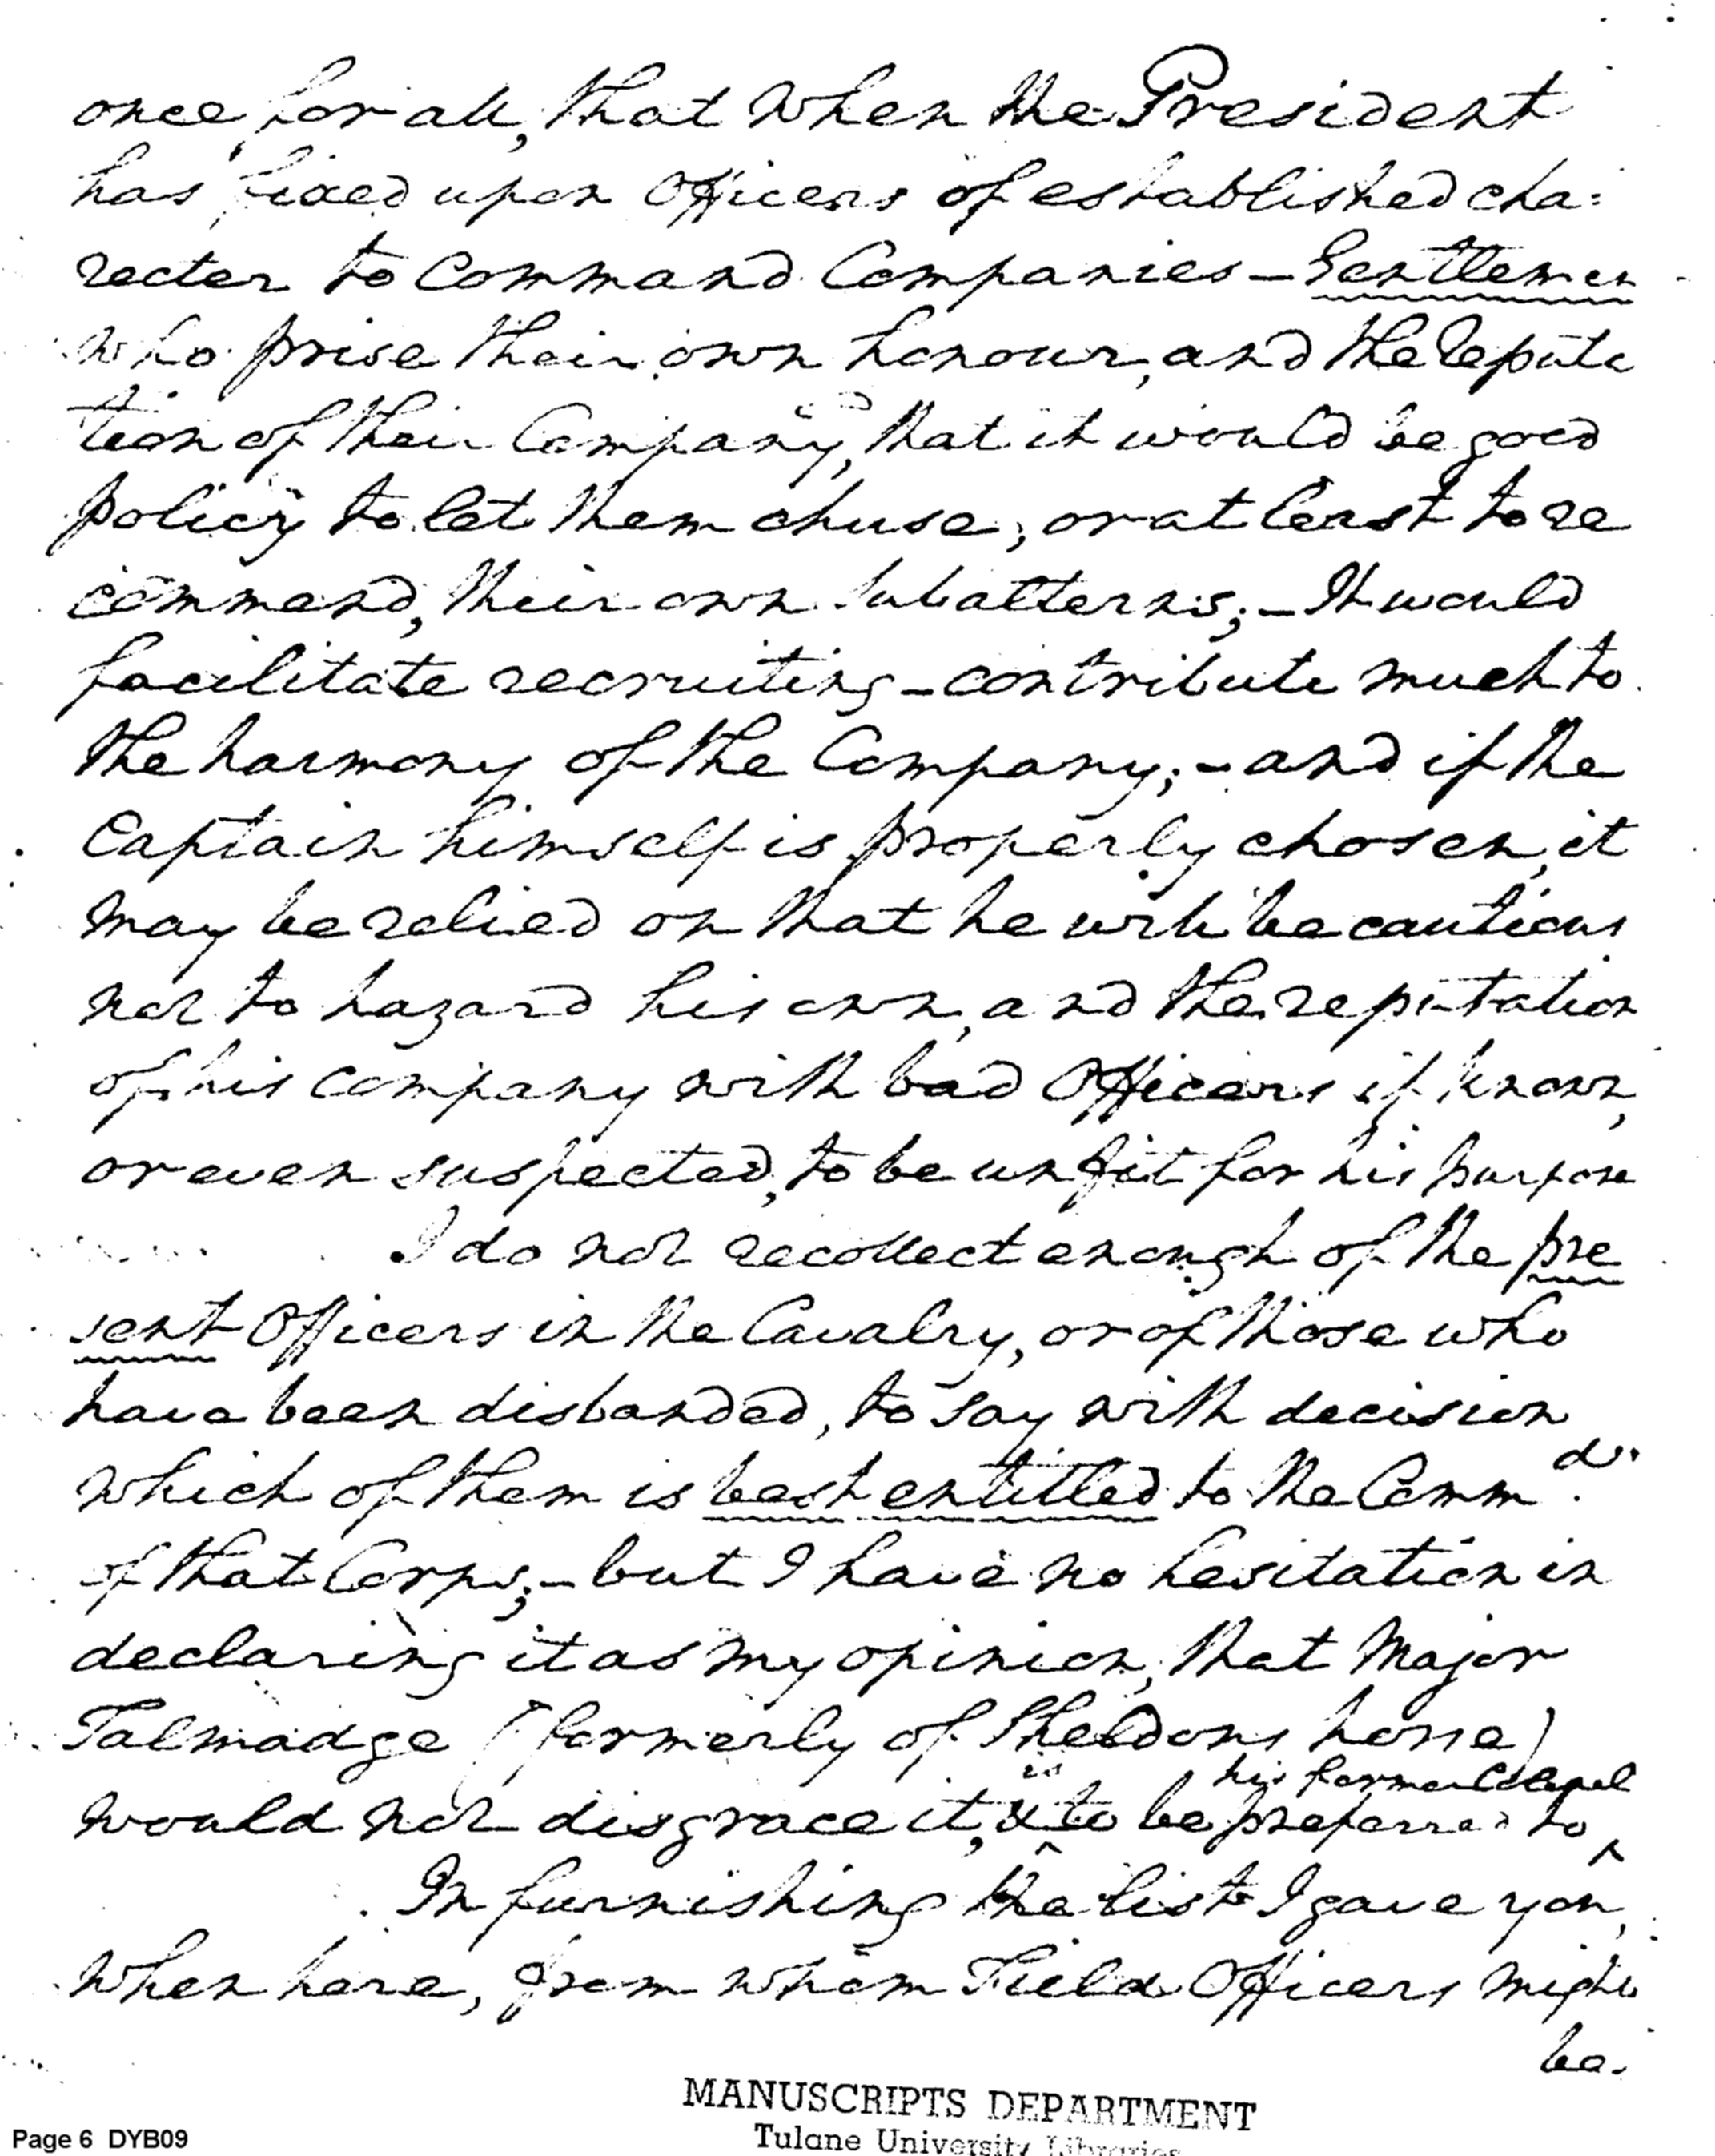 once for all, that when the President
has fixed upon Officers of established cha:
recter to Command Companies – Gentlemen
who prise their own honour, and the reputa
tion of their Company, that it would be good
policy to let them chuse, or at least to re
commend, their own Subalterns; – It would
facilitate recruiting – contribute much to
the harmony of the Company; – and if the
Captain himself is properly chosen, it
may be relied on that he will be cautious
not to hazard his own, and the reputation
of his company with bad Officers if known,
or even suspected, to be unfit for his purpose
I do not recollect enough of the pre
sent Officers in the Cavalry, or of those who
have been disbanded, to say with decision
which of them is best entitled to the Commd.
of that Corps; – but I have no hesitation in
declaring it as my opinion, that Major
Talmadge (formerly of Sheldons horse)
would not disgrace it, & is to be preferred to his former Colonel
In furnishing the list I gave you,
when here, from whom Field Officers might
be.
MANUSCRIPTS DEPARTMENT
Tulane University Libraries
Page 6 DYB09